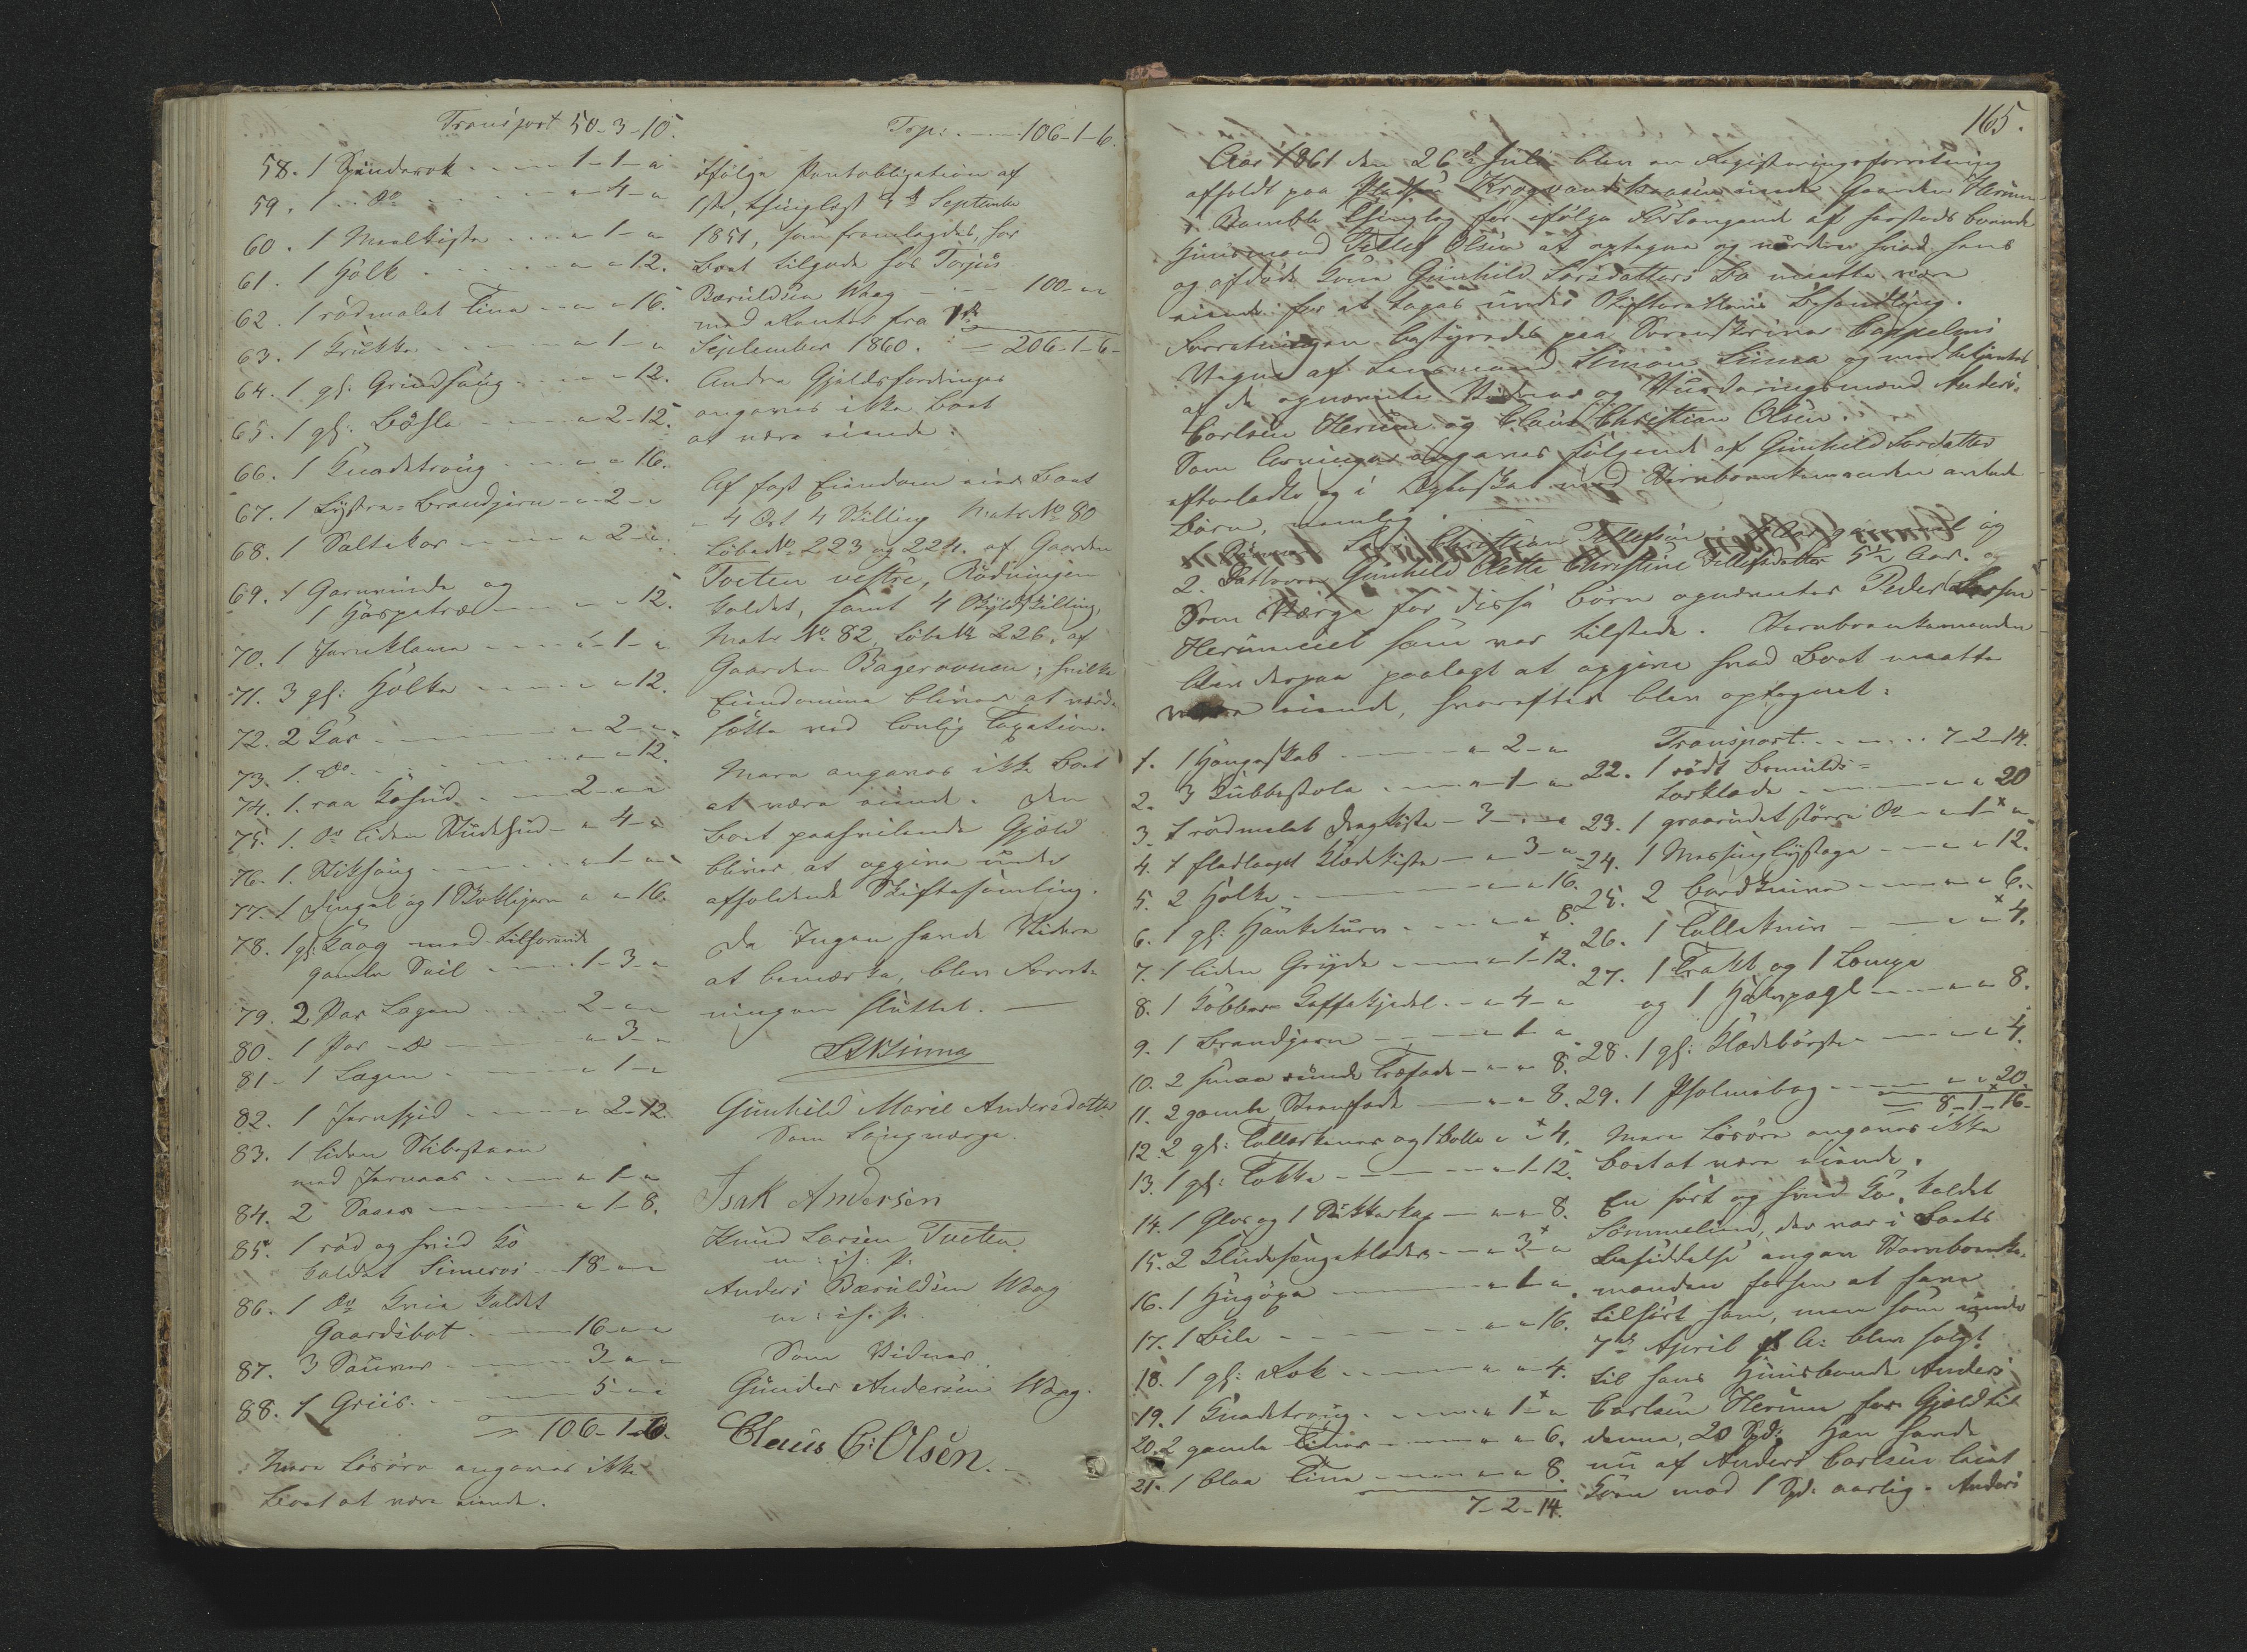 Transport 50-3-15.
58. 1 Spinderok - - - 1-1-"
59. 1 Do - - - "-4-"
60. 1 Maalkiste - - - "-1-"
61. 1 Holk - - - "-"-12.
62. 1 rödmalet Tine - - "-"-16.
63. 1 Krukke - - - "-1-"
64. 1 gl: Griidsaug - - "-"-12.
65. 1 gl: Bösse - - - "-2-12.
66. 1 Knadetroug - - "-"-16.
67. 1 Lystre-Brandjern - "-2-"
68. 1 Saltekar - - - "-2-"
69. 1 Garnvinde og
1 Haspetræ - - - "-"-12.
70. 1 Jernklame - - - "-1-"
71. 3 gl: Holke - - - "-"-12.
72. 2 Kar - - - "-2-"
73. 1. Do - - - "-"-12.
74. 1. raa Kohud - - 2-"-"
75. 1. Do liden Studehud - "-4-"
76. 1. Stiksaug - - - "-1-"
77. 1 Dengel og 1 Bokkejern "-"-16.
78. 1 gl: Kaag med tilhörende
gamle Seil - - - 1-3-"
79. 2 Par Lagen - - - 2-"-"
80. 1 Par Do - - - "-3-"
81. 1 Lagen - - - "-1-"
82. 1 Jernspid - - - "-2-12.
83. 1 liden Slibesteen
med Jernaas - - - "-1-"
84. 2 Saaer - - - "-1-8.
85. 1 röd og hvid Ko
kaldet Simeros - - 18-"-"
86. 1 Do Kvie kaldet
Gaardsbot - - - 16-"-"
87. 3 Sauer - - - 3-"-"
88. 1 Griis - - - 5-"-"
= 106-1-6.
Mere Lösöre angaves ikke
Boet at være eiende.
Trsp: - - - 106-1-6.
ifölge Pantobligation af
1ste, thinglæst 4de September
1851, som fremlagdes, har
Boet tilgode hos Torjus
Bæruldsen Waag - - - 100-"-"
med Renter fra 1ste
September 1860. = 206-1-6-
Andre Gjeldsfordringer
angaves ikke Boet
at være eiende.
Af fast Eiendom eier Boet
- 4 Ort 4 Skilling Matr No 80
Löbe No 223 og 224. af Gaarden
Tveten vestre, Rödningen
kaldet, samt 4 Skylskilling,
Matr No. 82, Löbe No 226, af
Gaarden Bagerovnen; hvilke
Eiendomme bliver at værd-
sætte ved lovlig Taxation.
Mere angaves ikke Boet
at være eiende. Den
Boet paahvilende Gjæld
bliver at opgive under
afholdende Skiftesamling.
Da Ingen havde Videre
at bemærke, blev Forret-
ningen sluttet. —
SLKSinna
Gunhild Marie Andersdatter
Som Laugværge.
Isak Andersen
Knud Larsen Tveten
m: if: p:
Anders Bæruldsen Waag
m: if: p.
Som Vidner
Gunder Andersen Waag.
Claus C: Olsen. -
165.
Aar 1861 den 26de Juli blev en Registreringsforretning
afholdt paa Pladsen Krogvandskaasen under Gaarden Herum
i Bamble Thinglag for ifölge Forlangende af hersteds boende
Huusmand Tellef Olsen at optegne og vurdere hvad hans
og afdöde Kone Gunhild Larsdatters Bo maatte være
eiende for at tages under Skifterettens Behandling.
Forretningen bestyredes paa Sorenskriver Cappelens
Vegne af Lensmand Simon Sinna og medbetjentes
af de opnævnte Vidner og Vurderingsmænd Anders
Carlsen Herum og Claus Christian Olsen.
Som Arvinger angaves fölgende af Gunhild Larsdatter
efterladte og i Ægteskab med Sterboenkemanden avlede
Börn, nemlig:
Christian Tellefsen Aar gammel og
2. Datteren Gunhild Alette Christine Tellefsdatter 5½ Aar.
Som Værge for disse Börn opnævntes Peder Larsen
Herumeiet som var tilstede. Sterboenkemanden
blev derpaa paalagt at opgive hvad Boet maatte
være eiende, hvorefter blev optegnet:
1. 1 Hængeskab - - - "-2-"
2. 3 Kubbestole - - - "-1-"
3. 1 rödmalet Dragkiste - 3-"-"
4. 1 fladlaaget Klædekiste - "-3-"
5. 2 Holke - - - "-"-16.
6. 1 gl: Hankekurv - - - "-"-8.
7. 1 liden Gryde - - - "-1-12.
8. 1 Kobber Kaffekjedel - "-4-"
9. 1 Brandjern - - - "-1-"
10. 2 smaa runde Træfade - "-"-8.
11. 2 gamle Steenfade - - "-"-8.
12. 2 gl: Tallerkener og 1 Bolle "-"-4.
13. 1 gl: Tokke - - - "-1-12.
14. 1 Glas og 1 Sukkerkop - "-"-8.
15. 2 Kludesengeklæder - - "-3-"
16. 1 Hugöxe - - - "-1-"
17. 1 Bile - - - "-"-16.
18. 1 gl: Rok - - - "-"-4.
19. 1 Knadetroug - - - "-1-"
20. 2 gamle Tiner - - - "-"-6.
21. 1 blaa Tine - - - "-"-8.
7-2-14.
Transport - - - 7-2-14.
22. 1 rödt Bomulds-
Törklæde - - - "-"-20
23. 1 graarudet större Do - "-1-"
24. 1 Messinglysestage - - "-"-12.
25. 2 Bordknive - - - "-"-6.
26. 1 Tollekniv - - - "-"-4.
27. 1 Trakt og 1 Lampe
og 1 Halvpægl - - - "-"-8.
28. 1 gl: Klædebörste - - - "-"-4.
29. 1 Psalmebog - - - "-"-20.
= 8-1-16-
Mere Lösöre angaves ikke
Boet at være eiende.
En sort og hvid Ko, kaldet
Sommelind, der var i Boets
Besiddelse angav Sterboenke-
manden forhen at have
tilhört ham, men som under
7de April d. A: blev solgt
til hans Huusbonde Anders
Carlsen Herum for Gjæld til
denne, 20 Spd. Han havde
nu af Anders Carlsen leiet
Koen mod 1 Spd. aarlig. Anders